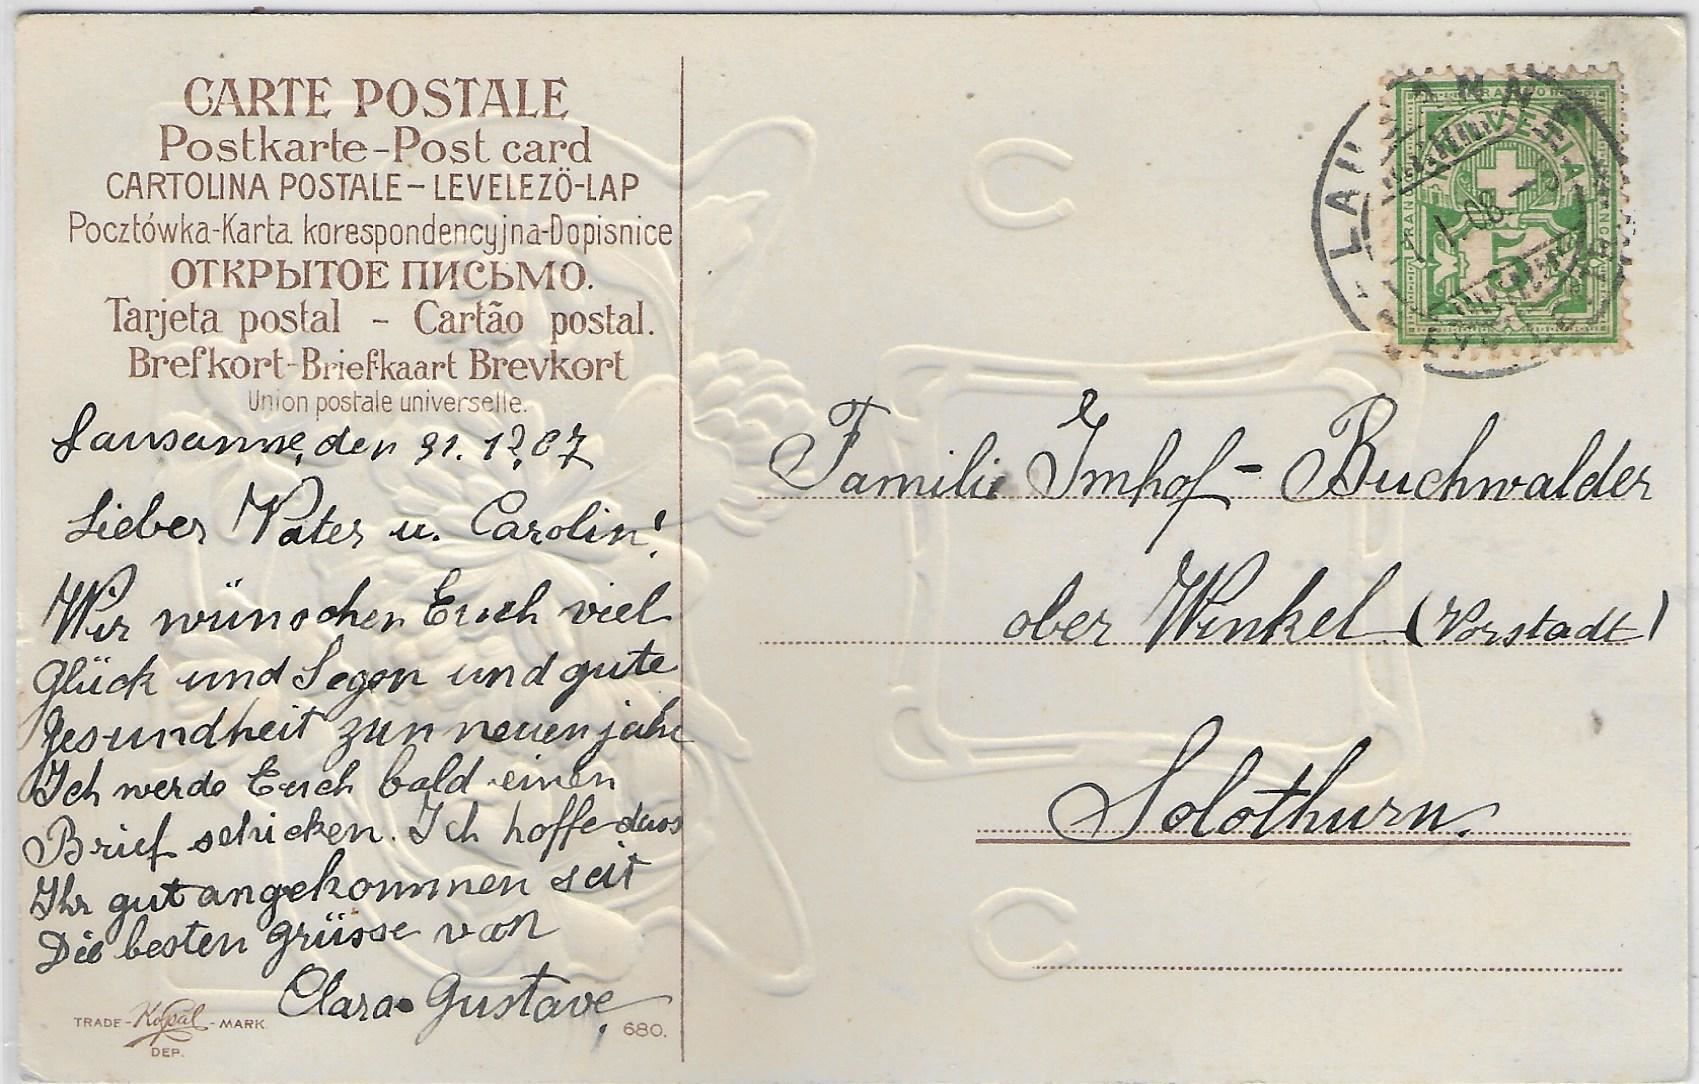 CARTE POSTALE
Postkarte-Post card
CARTOLINA POSTALE-LEVELEZÖ-LAP
Pocztówka-Karta korespondencyjna-Dopisnice
ОТКРЫТОЕ ПИСЬМО.
Tarjeta postal - Cartão postal.
Brefkort-Briefkaart Brevkort
Union postale universelle.
Lausanne, den 31. 12. 07
Lieber Vater u. Carolin!
Wir wünschen Euch viel
Glück und Segen und gute
Gesundheit zun neuen jahr
Ich werde Euch bald einen
Brief schicken. Ich hoffe dass
Ihr gut angekommen seit
Die besten grüsse von
Clara Gustave
TRADE-Kopal-MARK
DEP.
680.
HELVETIA
FRANCO
5
1.08
Familie Imhof-Buchwalder
ober Winkel (Vorstadt)
Solothurn.